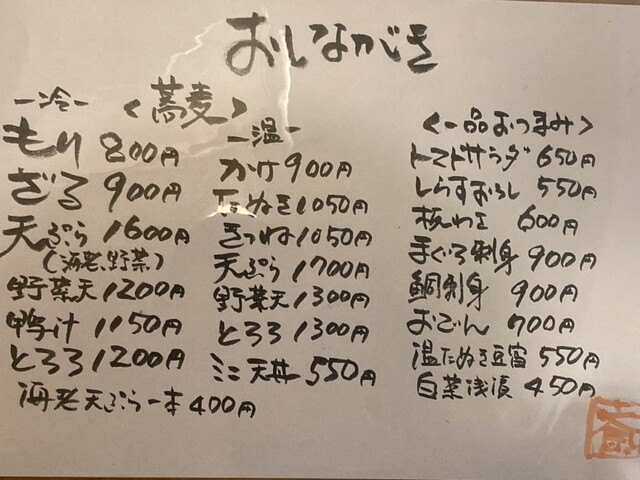 おしながき
<蕎麦>
-冷-
もり 800円
ざる 900円
天ぷら 1600円
(海老、野菜)
野菜天 1200円
鴨汁 1150円
とろろ 1200円
海老天ぷら一本 400円
-温-
かけ 900円
たぬき 1050円
きつね 1050円
天ぷら 1700円
野菜天 1300円
とろろ 1300円
ミニ天丼 550円
<一品おつまみ>
トマトサラダ 650円
しらすおろし 550円
板わさ 600円
まぐろ刺身 900円
鯛刺身 900円
おでん 700円
温たぬき豆富 550円
白菜浅漬 450円